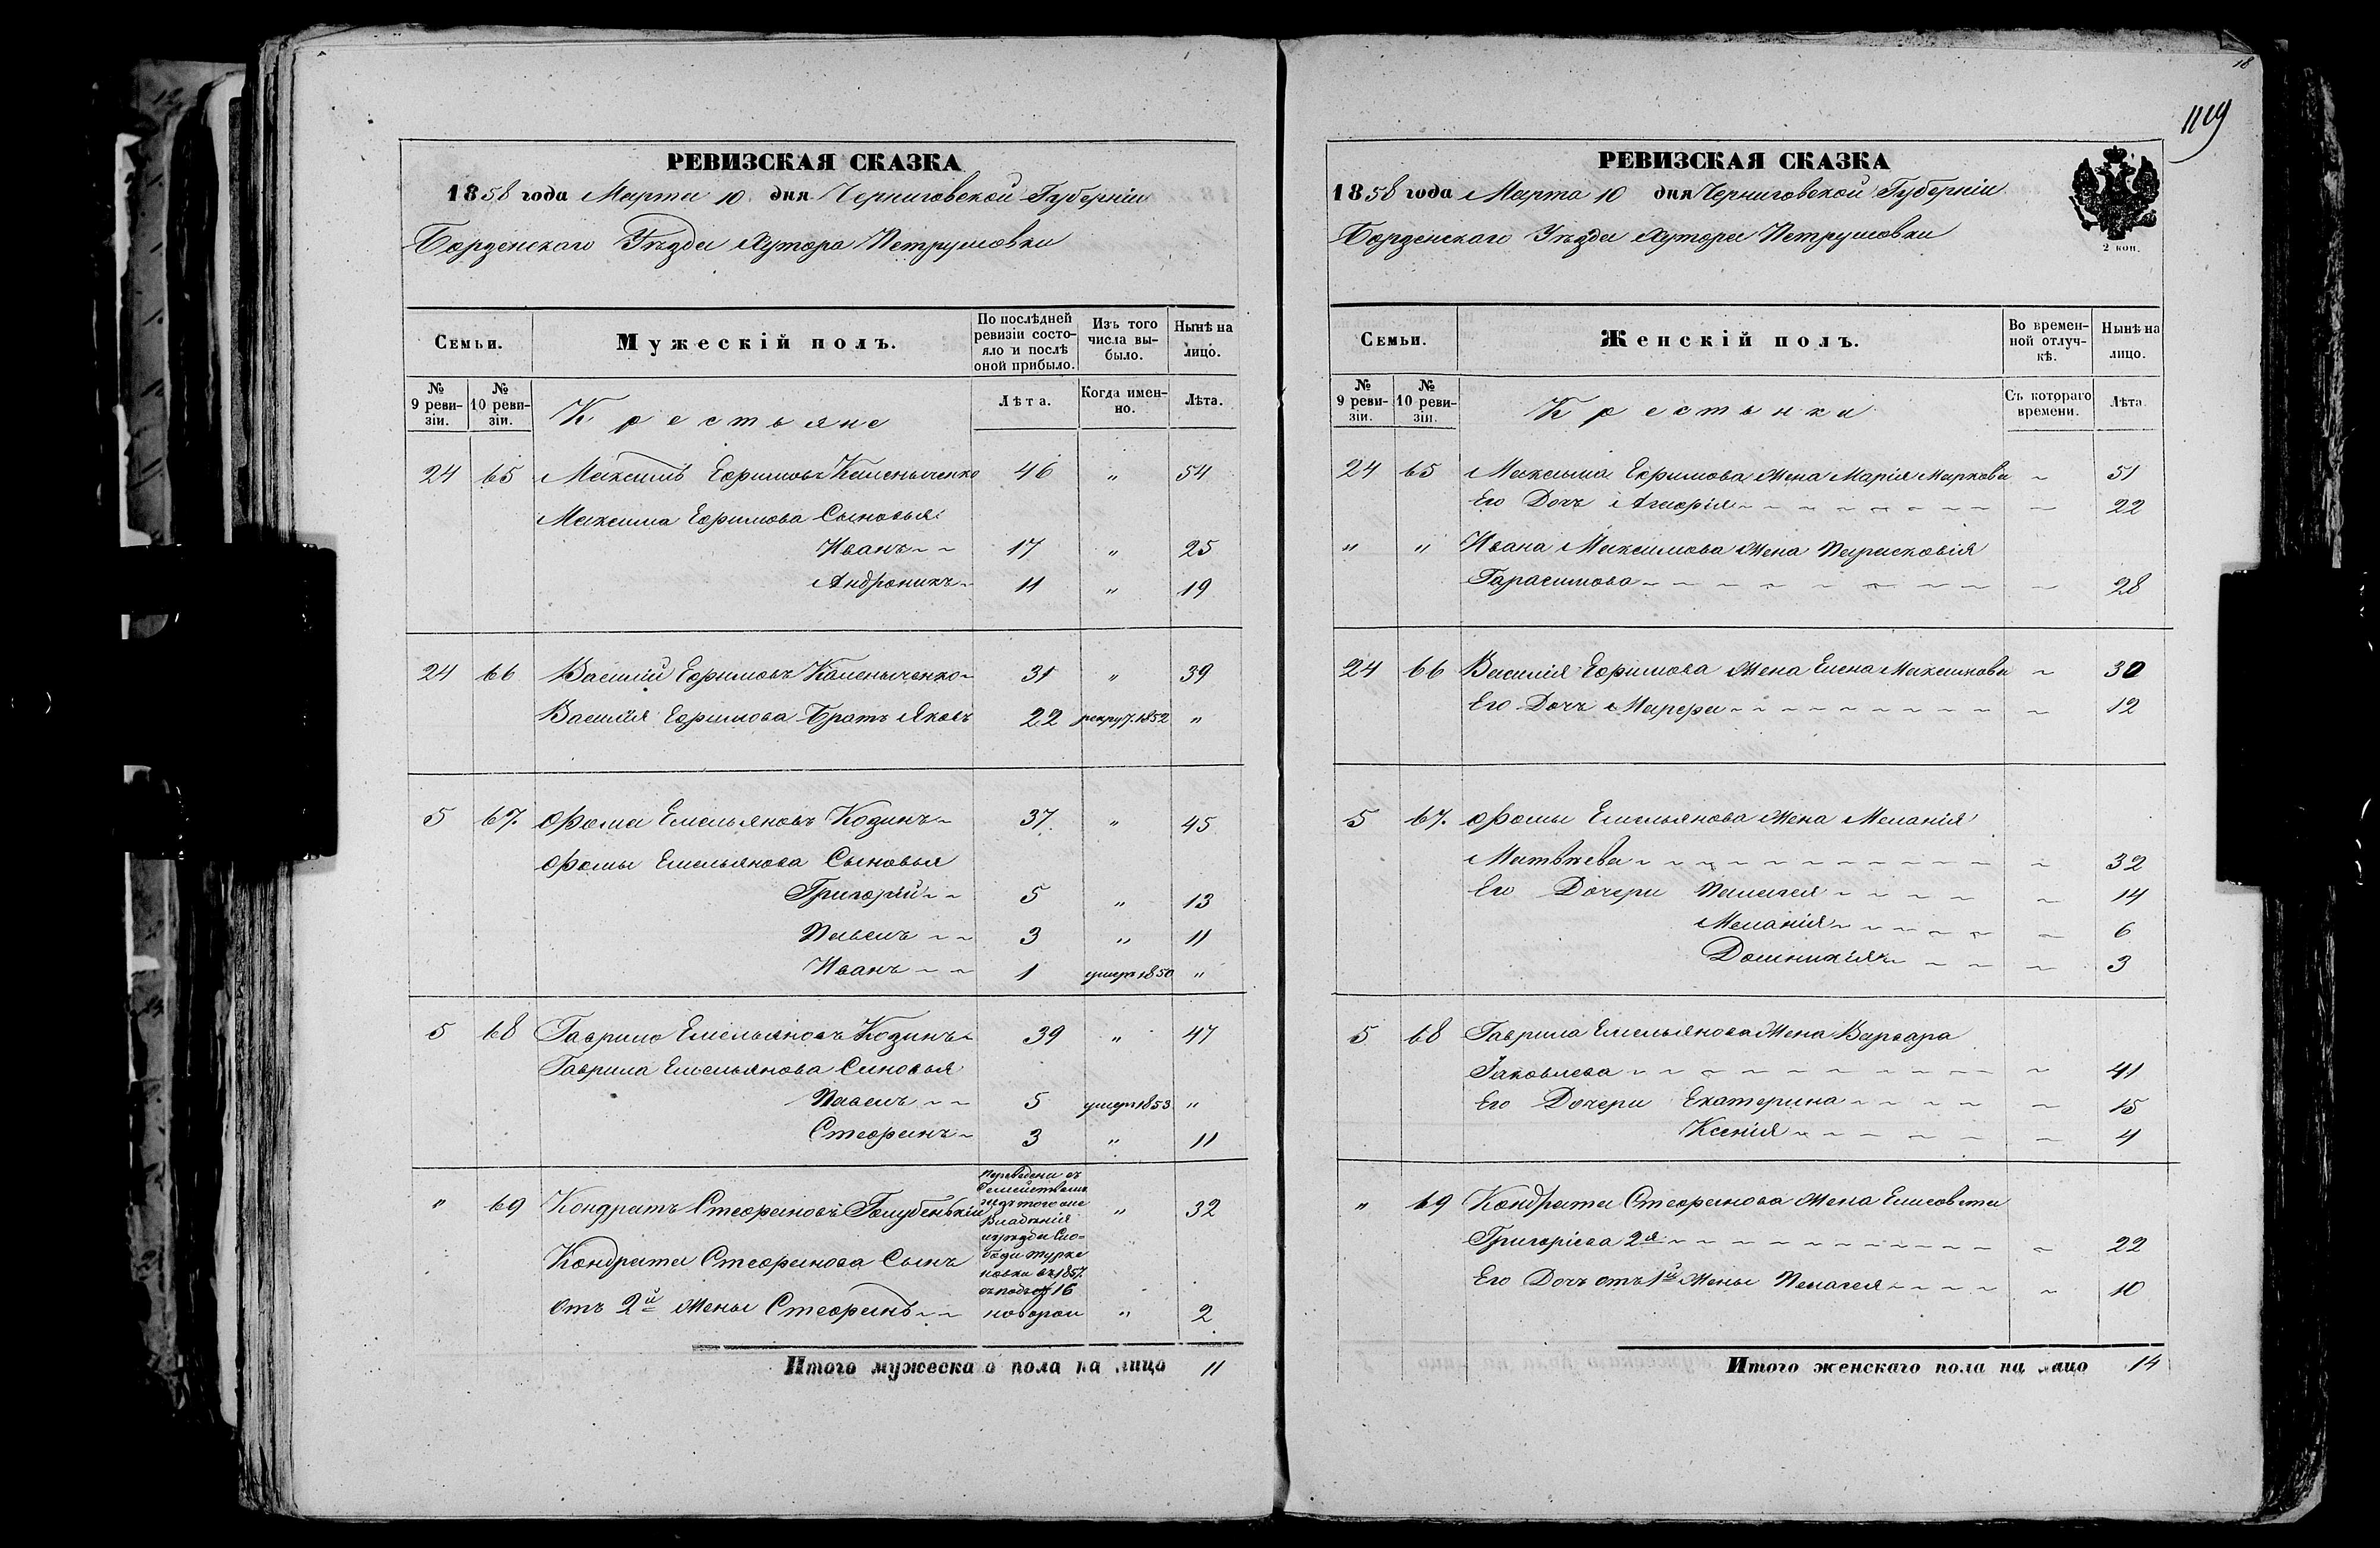 РЕВИЗСКАЯ СКАЗКА
1858 года Марта 10 дня Черниговской Губерніи
Борзенскаго Уѣзда Хутора Петрушовки
Семьи.
Мужескій полъ.
По послѣдней ревизіи состояло и послѣ оной прибыло.
Изъ того числа выбыло.
Нынѣ на лицо.
№ 9 ревизіи.
№ 10 ревизіи.
Крестьяне
Лѣта.
Когда именно.
Лѣта.
24 65 Максимъ Ефимовъ 46 " 54
Максима Ефимова Сыновья
Иванъ 17 " 25
Андроникъ 11 " 19
24 66 Василий Ефимовъ 31 " 39
Василія Ефимова Братъ Яковъ 22 рекру. 1852 "
5 67. Фома Емельяновъ Козинъ 37. " 45
Фомы Емельянова Сыновья
Григорій 5 " 13
Павелъ 3 " 11
Иванъ 1 умер 1850 "
5 68 Гаврило Емельяновъ Козинъ 39 " 47
Гаврила Емельянова Синовья
Павелъ 5 умер 1853 "
Стефанъ 3 " 11
" 69 Кондратъ Стефановъ Голубенькій " 32
Переведенъ съ
Семействомъ
изъ того же
Владѣнія
уѣзда Сло-
боди
въ 1857.
16
Кондрата Стефанова Сынъ
отъ 2й Жены Стефанъ " 2
Итого мужескаго пола на лицо 11
18
1119
РЕВИЗСКАЯ СКАЗКА
1858 года Марта 10 дня Черниговской Губерніи
Борзенскаго Уѣзда Хутора Петрушовки
2 коп.
Семьи.
Женскій полъ.
Во временной отлучкѣ.
Нынѣ на лицо.
№ 9 ревизіи.
№ 10 ревизіи.
Крестьянки
Съ котораго времени.
Лѣта
24 65 Максима Ефимова Жена Марія Маркова 51
Его Дочъ Агафія 22
" " Ивана Максимова Жена Парасковія
Гарасимова 28
24 66 Василія Ефимова Жена Елена Максимова 30
Его Дочъ Марфа 12
5 67. Фомы Емельянова Жена Меланія
Матвѣева 32
Его Дочери Пелагея 14
Меланія 6
Домникія 3
5 68 Гаврила Емельянова Жена Варвара
Яковлева 41
Его Дочери Екатерина 15
Ксенія 4
" 69 Кондрата Стефанова Жена Елисовета
Григоріева 2я 22
Его Дочъ отъ 1й Жены Пелагея 10
Итого женскаго пола на лицо 14